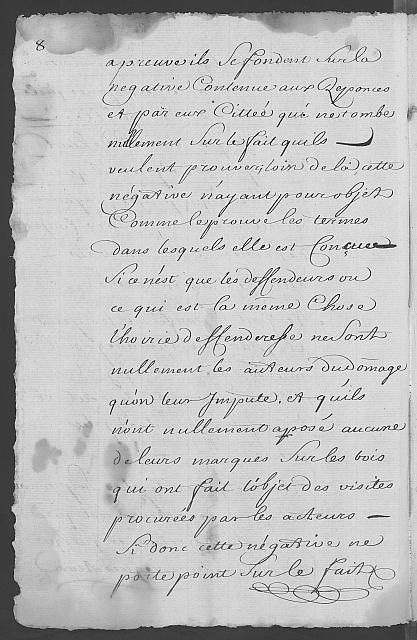 8
apreuve ils se fondent sur la
negative Contenue aux Reponces
et par eux Cittée qui ne tombe
nullement sur le fait quils
veulent prouver, loin de là, cette
négative n'ayant pour objet
Comme le prouve les termes
dans lesquels elle est Conçuee
Si ce n'est que les deffendeurs ou
ce qui est la même Chose
l'hoirie deffenderesse ne sont
nullement les auteurs du domage
qu'on leur Impute, et quils
n'ont nullement aposé aucune
de leurs marques sur les bois
qui ont fait l'objet des visites
procurées par les acteurs
Si donc cette négative ne
porte point sur le fait